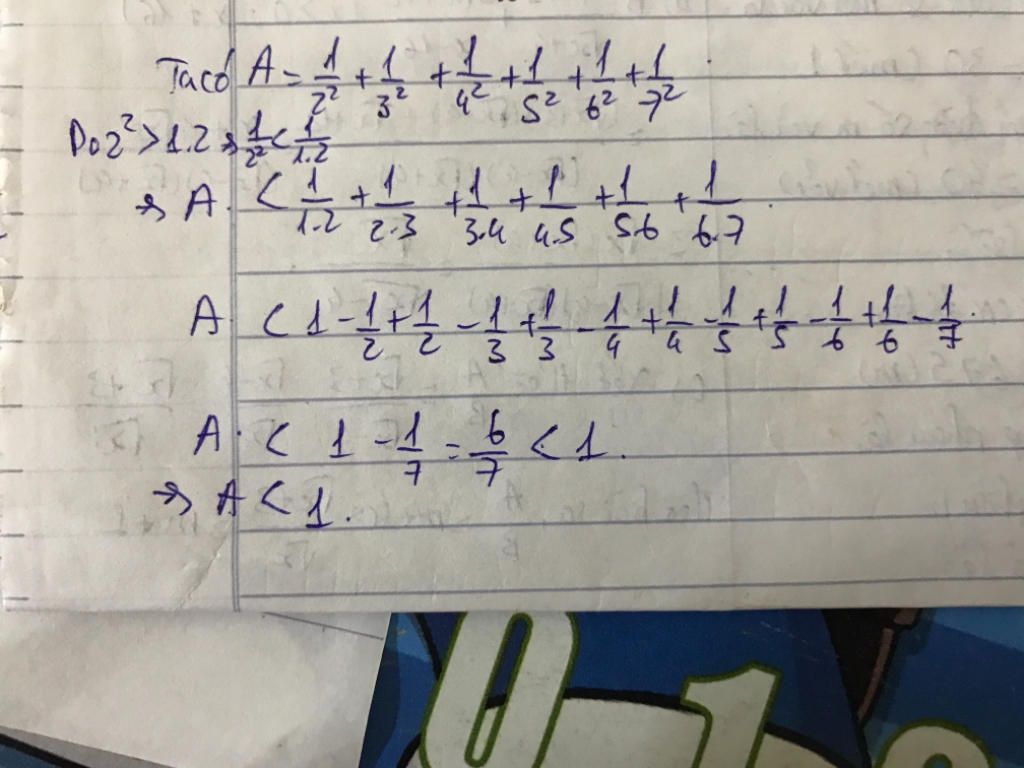 Ta có A = 1/2² + 1/3² + 1/4² + 1/5² + 1/6² + 1/7²
Do 2² > 1.2 → 1/2² < 1/1.2
→ A < 1/1.2 + 1/2.3 + 1/3.4 + 1/4.5 + 1/5.6 + 1/6.7.
A < 1 - 1/2 + 1/2 - 1/3 + 1/3 - 1/4 + 1/4 - 1/5 + 1/5 - 1/6 + 1/6 - 1/7.
A < 1 - 1/7 = 6/7 < 1.
→ A < 1.